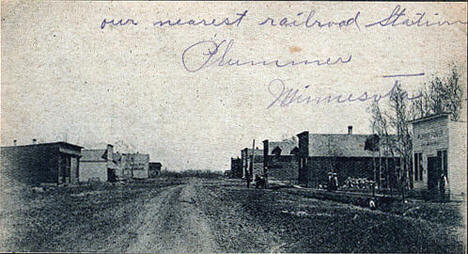 our nearest railroad Station
Plummer
Minnesota